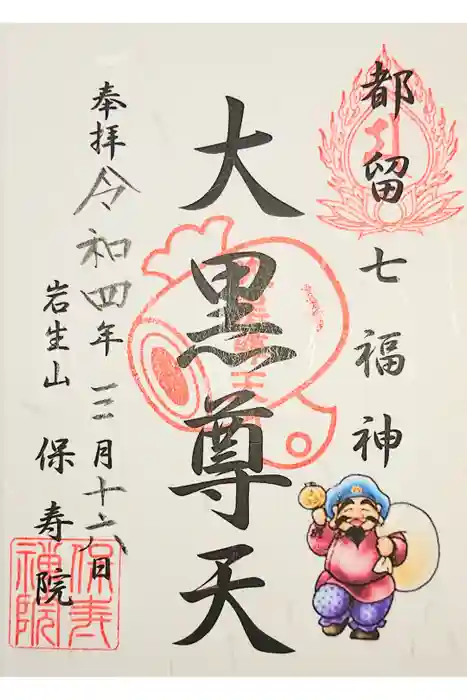 都留七福神
大黒尊天
奉拝 令和四年三月十六日
岩生山 保寿院
保寿禅院